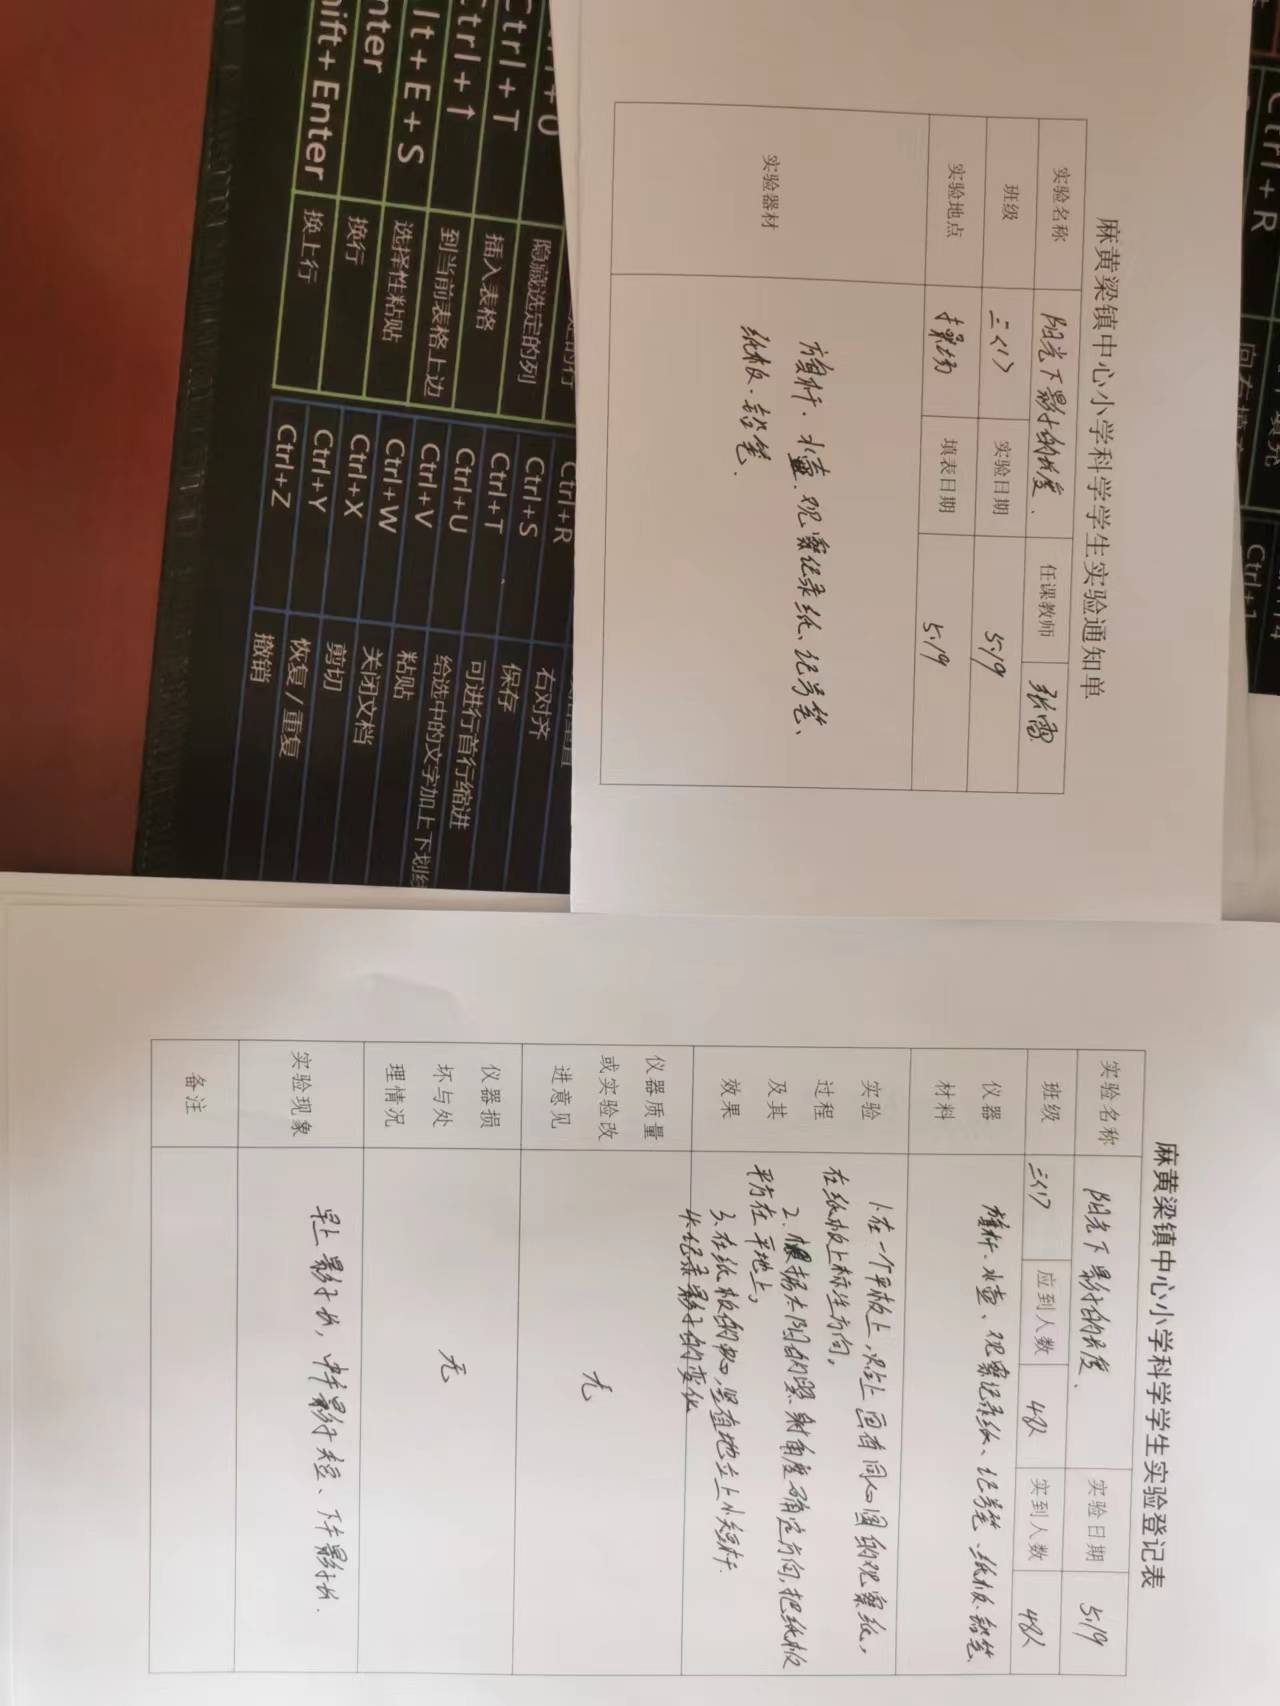 麻黄梁镇中心小学科学学生实验通知单
实验名称 阳光下影子的长度. 任课教师 张雷
班级 三(1) 实验日期 5.19
实验地点 操场 填表日期 5.19
实验器材
旗杆、水壶、观察记录纸、记号笔、
纸板、铅笔.
麻黄梁镇中心小学科学学生实验登记表
实验名称 阳光下影子的长度. 实验日期 5.19
班级 三(1) 应到人数 48人 实到人数 48人
仪器
材料
旗杆、水壶、观察记录纸、记号笔、纸板、铅笔
实验
过程
及其
效果
1.在一个平板上,贴上画有同心圆的观察纸,
在纸板上标注方向,
2.根据太阳的照射角度确定方向,把纸板
平方在平地上,
3.在纸板的中心,竖直地立上小短杆.
4.记录影子的变化
仪器质量
或实验改
进意见
无
仪器损
坏与处
理情况
无
实验现象
早上影子长,中午影子短、下午影子长.
备注
Ctrl+U
Ctrl+T
Ctrl+↑
Alt+E+S
Enter
Shift+Enter
隐藏选定的列
插入表格
到当前表格上边
选择性粘贴
换行
换上行
Ctrl+R
Ctrl+S
Ctrl+T
Ctrl+U
Ctrl+V
Ctrl+W
Ctrl+X
Ctrl+Y
Ctrl+Z
右对齐
保存
可进行首行缩进
给选中的文字加上下划线
粘贴
关闭文档
剪切
恢复/重复
撤销
Ctrl+R